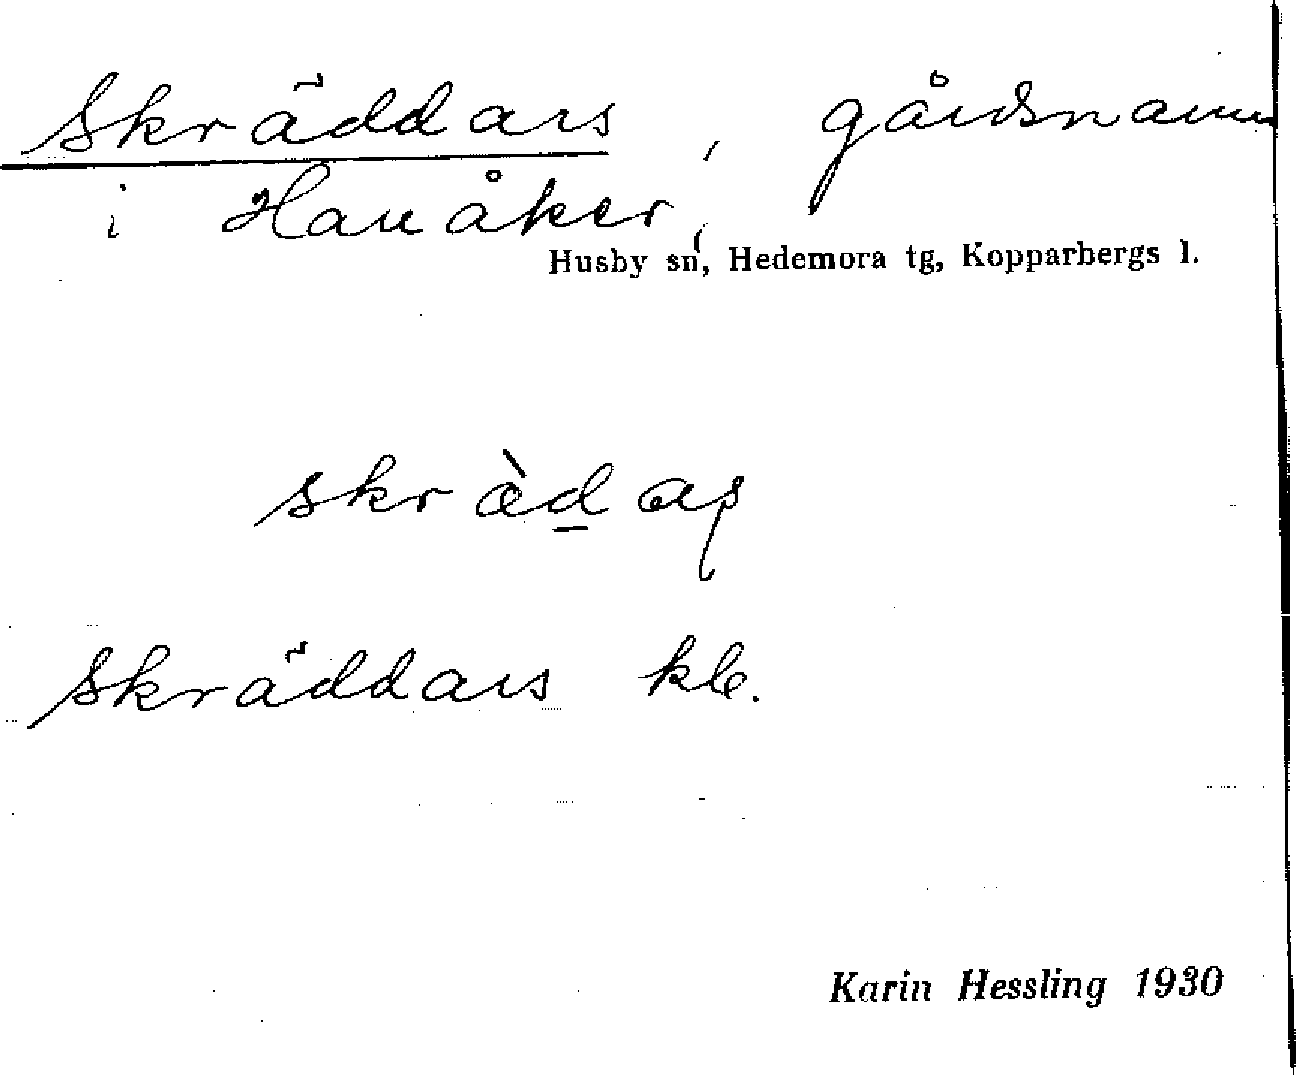 Skräddars, gårdsnamn
i Hanåker,
Husby sn, Hedemora tg, Kopparbergs l.
skræ̀d̲as̩
Skräddars kb.
Karin Hessling 1930